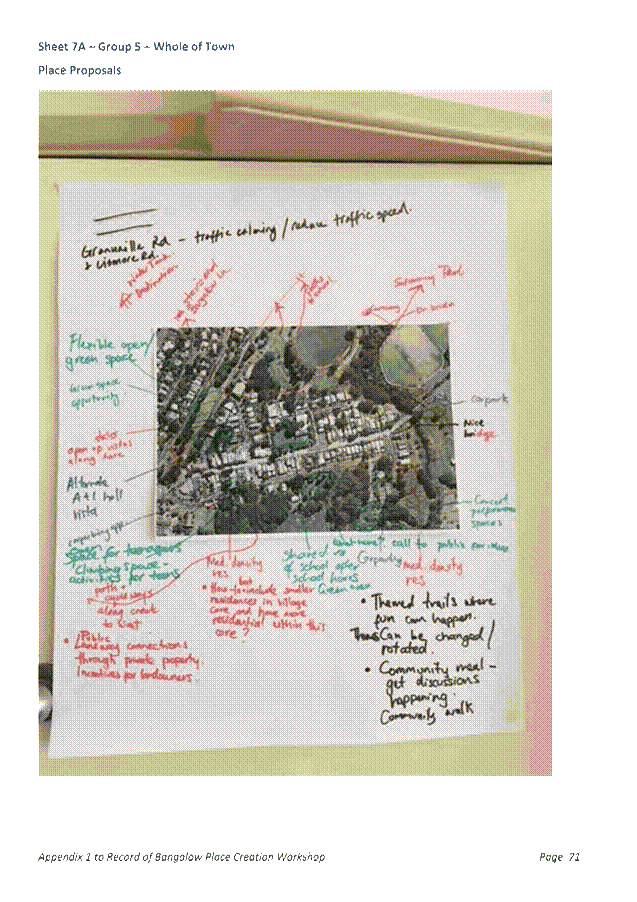 Sheet 7A ~ Group 5 ~ Whole of Town
Place Proposals
Granuaille Rd – traffic calming / reduce traffic speed.
& Lismore Rd.
Water Tank
Destination
Swimming Pool
Flexible open
green space
Green space
opportunity
open up vistas
along here
Carpark
Nice
bridge
Alternate
A+I hall
Concert
performance
spaces
Space for teenagers
Climbing space –
activities for teens
path
along creek
Med density
res
but
• How to include smaller
residences in village
core and have more
residential within this
core?
Shared
of school after
school hours
Green
Carparking
med density
res
call to public
• Public
Laneway connections
through private property.
Incentives for landowners.
• Themed trails where
fun can happen.
Can be changed /
rotated.
• Community meal –
get discussions
happening.
Community walk
Appendix 1 to Record of Bangalow Place Creation Workshop
Page 71